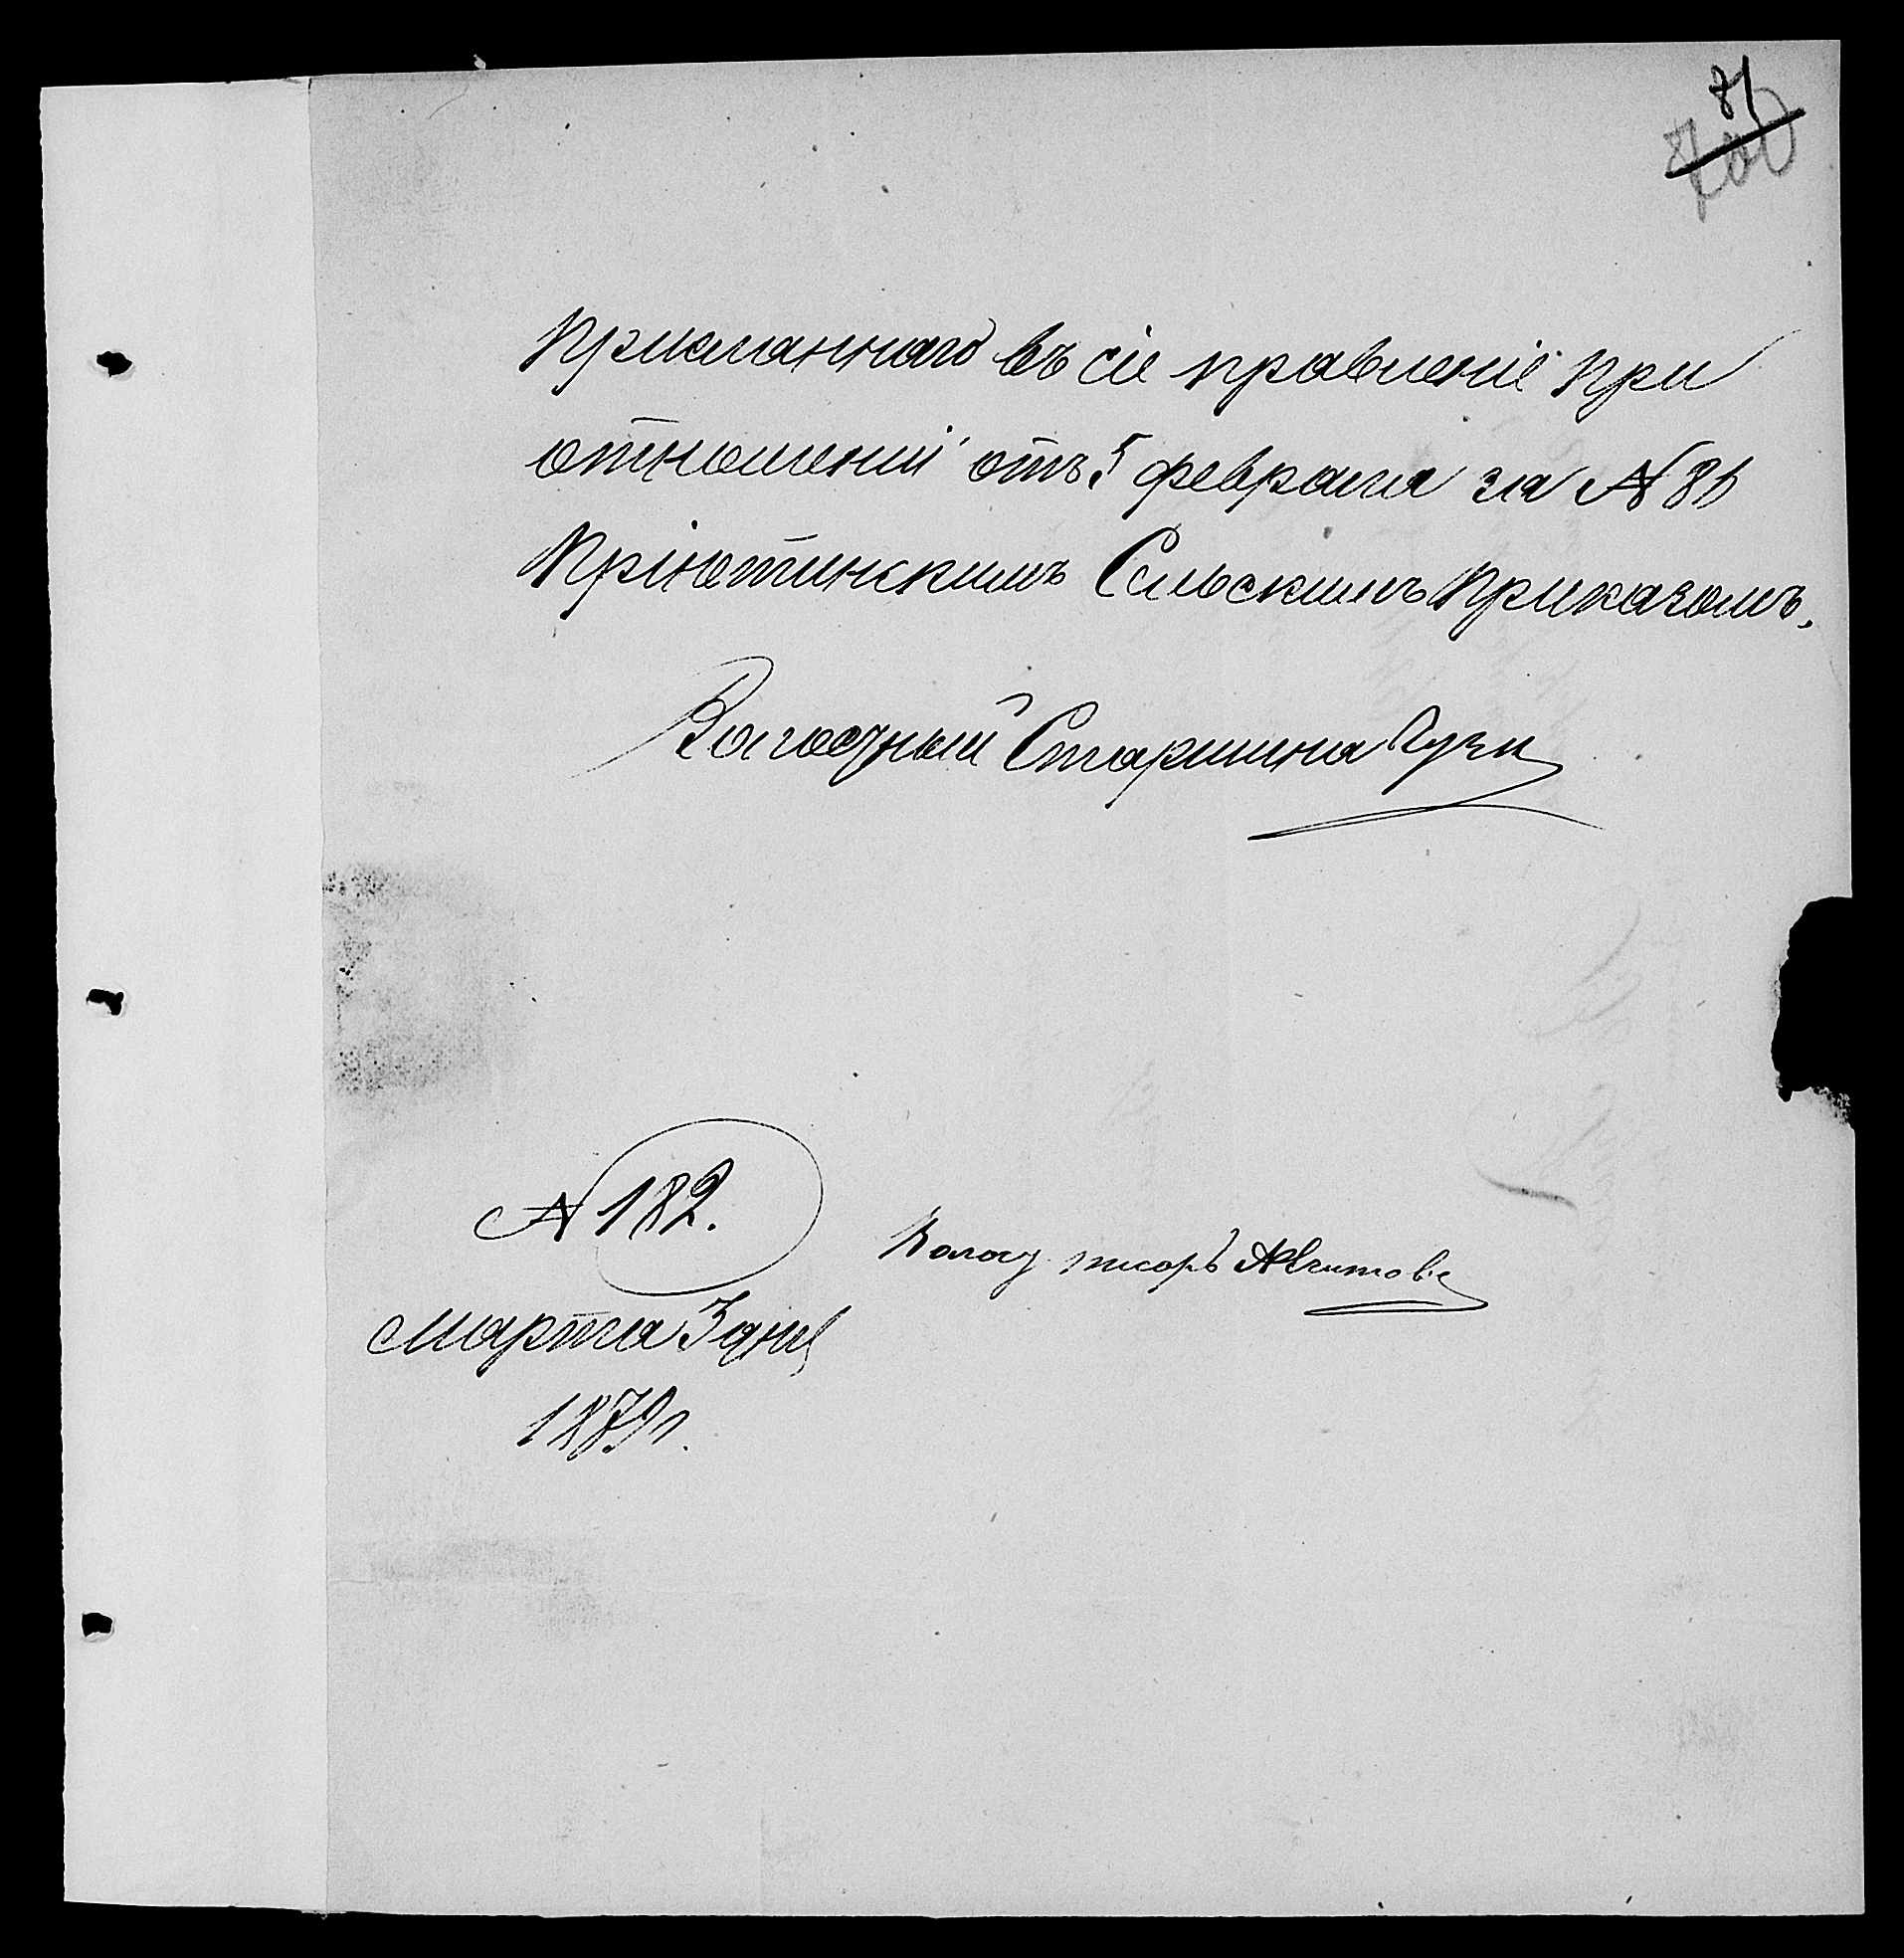 81
присланнаго въ сіе правленіе при
отношеніи отъ 5 февраля за № 86
Пріютинскимъ Сельскимъ приказомъ.
Волостный Старшина
№ 182.
Марта 3 дня
1879 г.
Волост. писарь